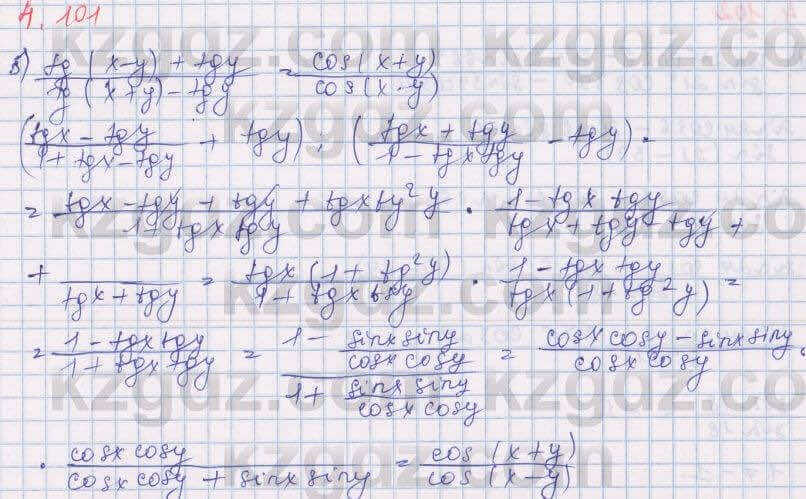 4.101
5) tg (x-y) + tgy / tg (x+y) - tgy = cos(x+y) / cos(x-y)
(tgx - tgy / 1 + tgx - tgy + tgy) : (tgx + tgy / 1 - tgx tgy - tgy) =
= tgx - tgy + tgy + tgx ty²y / 1 + tgx tgy · 1 - tgx tgy / tgx + tgy - tgy +
+ / tgx + tgy = tgx (1 + tg²y) / 1 + tgx tgy · 1 - tgx tgy / tgx (1 + tg²y) =
= 1 - tgx tgy / 1 + tgx tgy = 1 - sinx siny / cosx cosy / 1 + sinx siny / cosx cosy = cosx cosy - sinx siny / cosx cosy ·
· cosx cosy / cosx cosy + sinx siny = cos (x+y) / cos (x-y)
kzgdz.com